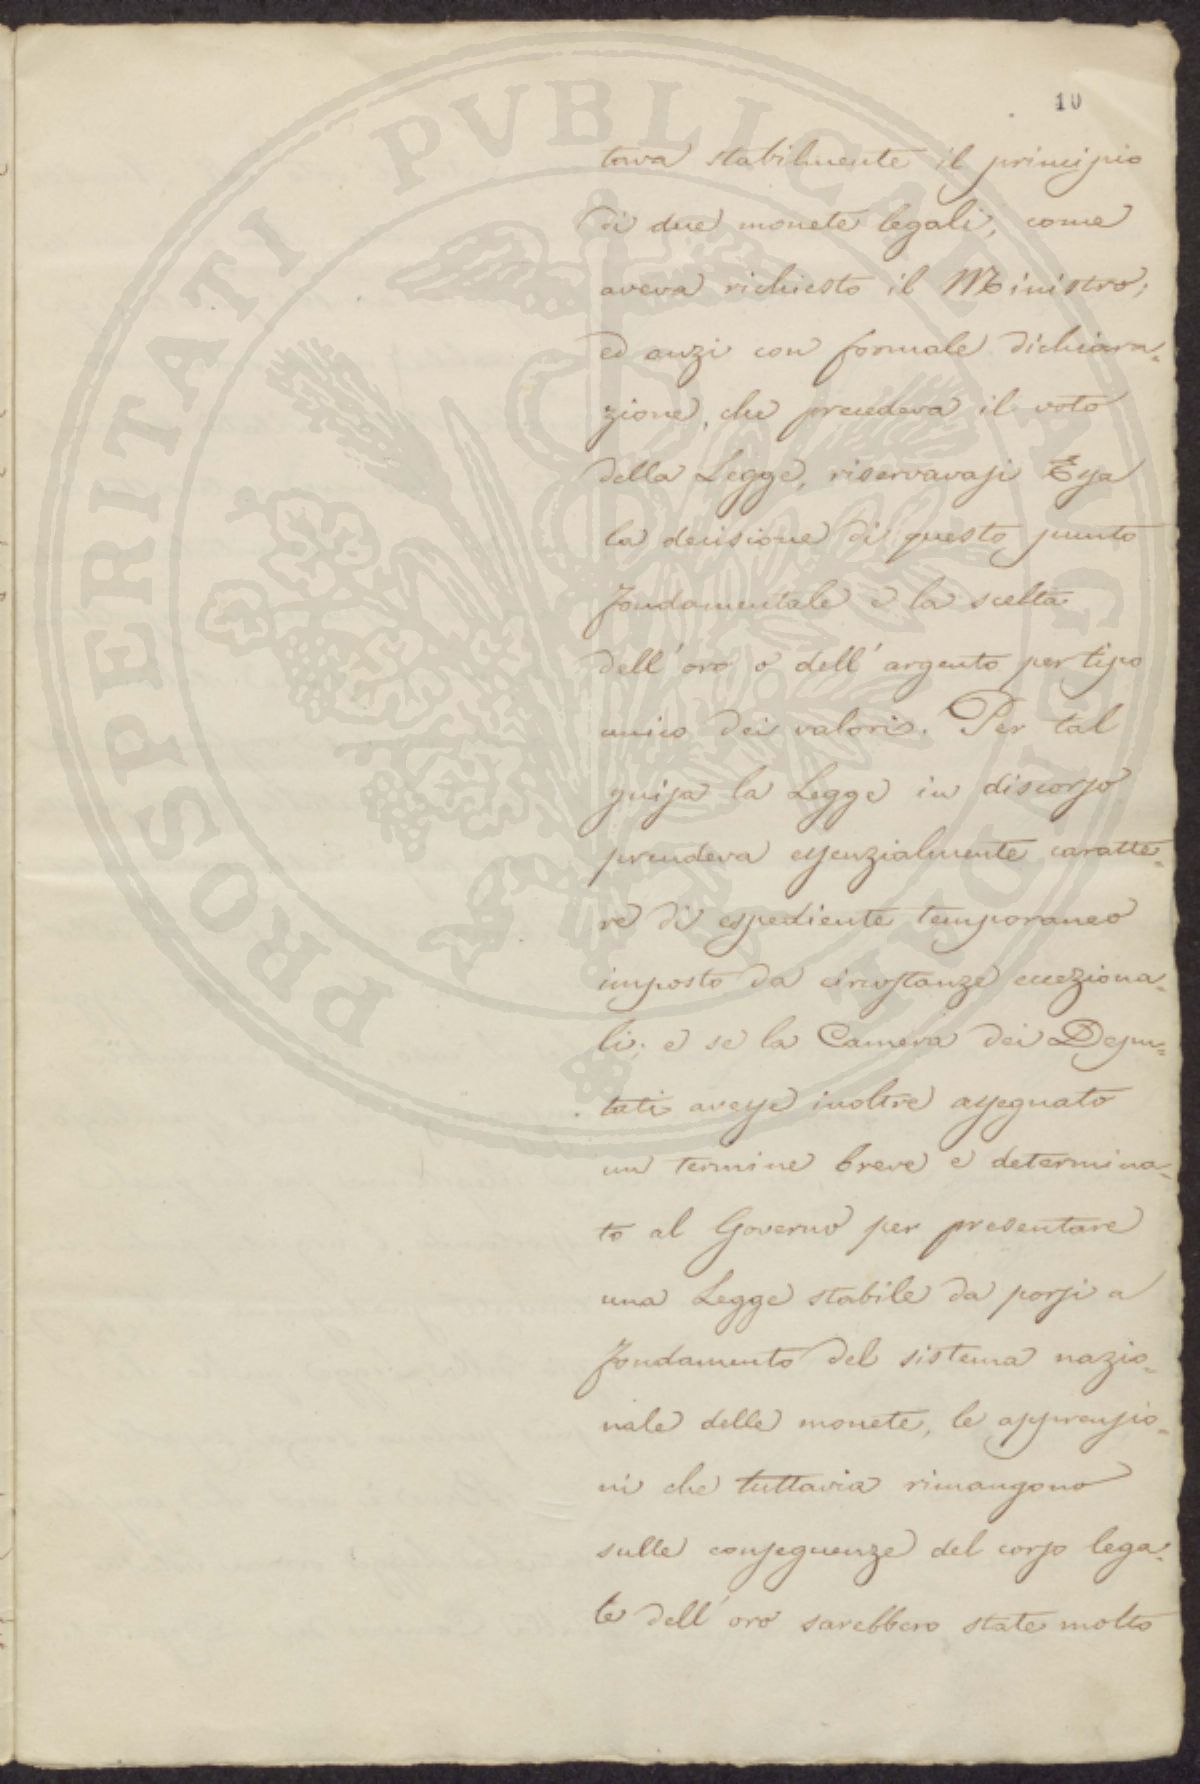 10
tova stabilmente il principio
di due monete legali, come
aveva richiesto il Ministro;
ed anzi con formale dichiara-
zione, che precedeva il voto
della Legge, riservavasi Essa
la decisione di questo punto
fondamentale e la scelta
dell'oro o dell'argento per tipo
unico dei valori. Per tal
guisa la Legge in discorso
prendeva essenzialmente caratte-
re di espediente temporaneo
imposto da circostanze ecceziona-
li; e se la Camera dei Depu-
tati avesse inoltre assegnato
un termine breve e determina-
to al Governo per presentare
una Legge stabile da porsi a
fondamento del sistema nazio-
nale delle monete, le apprensio-
ni che tuttavia rimangono
sulle conseguenze del corso lega-
le dell'oro sarebbero state molto
PROSPERITATI PVBLICAE AVGENDAE